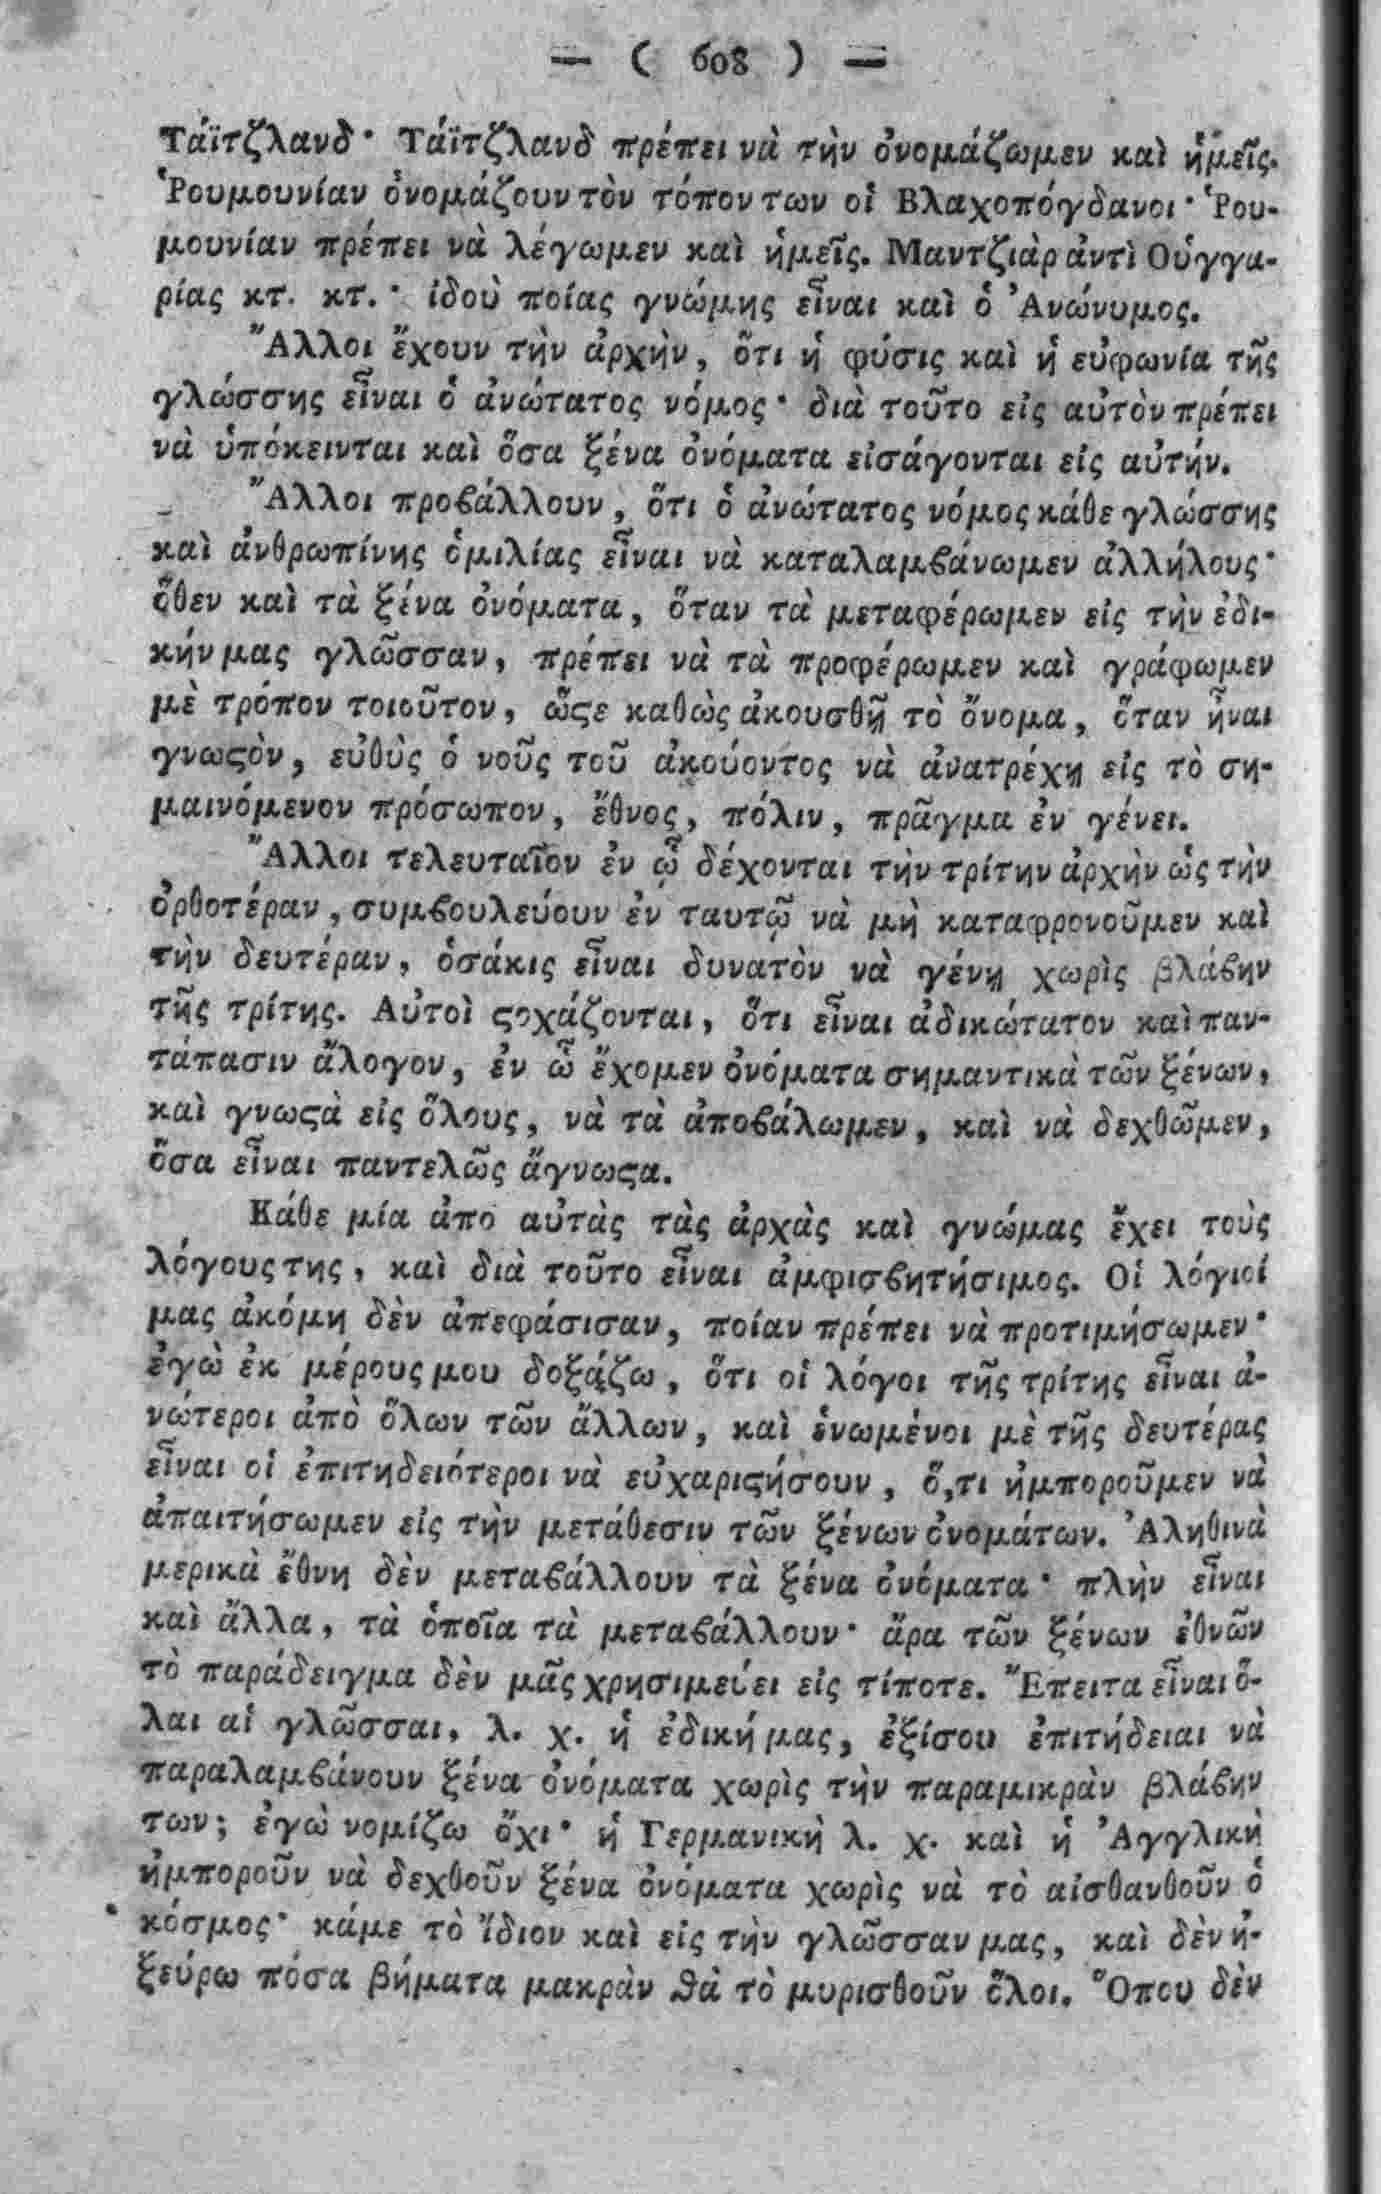 — ( 608 ) —
Τάϊτζλανδ· Τάϊτζλανδ πρέπει νὰ τὴν ὀνομάζωμεν καὶ ἡμεῖς.
Ῥουμουνίαν ὀνομάζουν τὸν τόπον των οἱ Βλαχοπόγδανοι· Ῥου-
μουνίαν πρέπει νὰ λέγωμεν καὶ ἡμεῖς. Μαντζιὰρ ἀντὶ Οὑγγα-
ρίας κτ. κτ.· ἰδοὺ ποίας γνώμης εἶναι καὶ ὁ Ἀνώνυμος.
Ἄλλοι ἔχουν τὴν ἀρχὴν, ὅτι ἡ φύσις καὶ ἡ εὐφωνία τῆς
γλώσσης εἶναι ὁ ἀνώτατος νόμος· διὰ τοῦτο εἰς αὐτὸν πρέπει
νὰ ὑπόκεινται καὶ ὅσα ξένα ὀνόματα εἰσάγονται εἰς αὐτήν.
Ἄλλοι προϐάλλουν, ὅτι ὁ ἀνώτατος νόμος κάθε γλώσσης
καὶ ἀνθρωπίνης ὁμιλίας εἶναι νὰ καταλαμϐάνωμεν ἀλλήλους·
ὅθεν καὶ τὰ ξένα ὀνόματα, ὅταν τὰ μεταφέρωμεν εἰς τὴν ἐδι-
κήν μας γλῶσσαν, πρέπει νὰ τὰ προφέρωμεν καὶ γράφωμεν
μὲ τρόπον τοιοῦτον, ὥϛε καθὼς ἀκουσθῇ τὸ ὄνομα, ὅταν ἦναι
γνωϛὸν, εὐθὺς ὁ νοῦς τοῦ ἀκούοντος νὰ ἀνατρέχῃ εἰς τὸ ση-
μαινόμενον πρόσωπον, ἔθνος, πόλιν, πρᾶγμα ἐν γένει.
Ἄλλοι τελευταῖον ἐν ᾧ δέχονται τὴν τρίτην ἀρχὴν ὡς τὴν
ὀρθοτέραν, συμϐουλεύουν ἐν ταυτῷ νὰ μὴ καταφρονοῦμεν καὶ
τὴν δευτέραν, ὁσάκις εἶναι δυνατὸν νὰ γένῃ χωρὶς βλάϐην
τῆς τρίτης. Αὐτοὶ ϛοχάζονται, ὅτι εἶναι ἀδικώτατον καὶ παν-
τάπασιν ἄλογον, ἐν ᾧ ἔχομεν ὀνόματα σημαντικὰ τῶν ξένων,
καὶ γνωϛὰ εἰς ὅλους, νὰ τὰ ἀποϐάλωμεν, καὶ νὰ δεχθῶμεν,
ὅσα εἶναι παντελῶς ἄγνωϛα.
Κάθε μία ἀπὸ αὐτὰς τὰς ἀρχὰς καὶ γνώμας ἔχει τοὺς
λόγους της, καὶ διὰ τοῦτο εἶναι ἀμφισϐητήσιμος. Οἱ λόγιοί
μας ἀκόμη δὲν ἀπεφάσισαν, ποίαν πρέπει νὰ προτιμήσωμεν·
ἐγὼ ἐκ μέρους μου δοξάζω, ὅτι οἱ λόγοι τῆς τρίτης εἶναι ἀ-
νώτεροι ἀπὸ ὅλων τῶν ἄλλων, καὶ ἑνωμένοι μὲ τῆς δευτέρας
εἶναι οἱ ἐπιτηδειότεροι νὰ εὐχαριϛήσουν, ὅ,τι ἠμποροῦμεν νὰ
ἀπαιτήσωμεν εἰς τὴν μετάθεσιν τῶν ξένων ὀνομάτων. Ἀληθινὰ
μερικὰ ἔθνη δὲν μεταϐάλλουν τὰ ξένα ὀνόματα· πλὴν εἶναι
καὶ ἄλλα, τὰ ὁποῖα τὰ μεταϐάλλουν· ἄρα τῶν ξένων ἐθνῶν
τὸ παράδειγμα δὲν μᾶς χρησιμεύει εἰς τίποτε. Ἔπειτα εἶναι ὅ-
λαι αἱ γλῶσσαι, λ. χ. ἡ ἐδική μας, ἐξίσου ἐπιτήδειαι νὰ
παραλαμϐάνουν ξένα ὀνόματα χωρὶς τὴν παραμικρὰν βλάϐην
των; ἐγὼ νομίζω ὄχι· ἡ Γερμανικὴ λ. χ. καὶ ἡ Ἀγγλικὴ
ἠμποροῦν νὰ δεχθοῦν ξένα ὀνόματα χωρὶς νὰ τὸ αἰσθανθοῦν ὁ
κόσμος· κάμε τὸ ἴδιον καὶ εἰς τὴν γλῶσσαν μας, καὶ δὲν ἠ-
ξεύρω πόσα βήματα μακρὰν θὰ τὸ μυρισθοῦν ὅλοι. Ὅπου δὲν